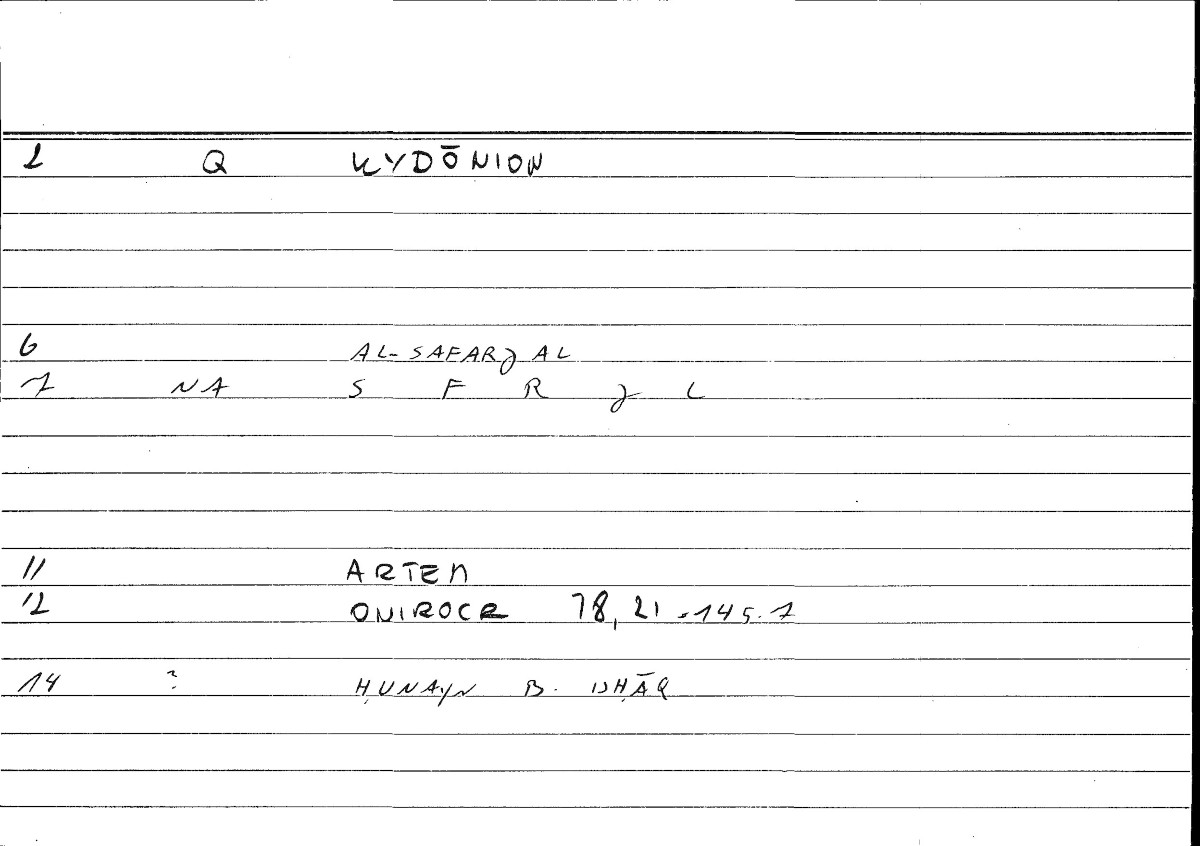 1 Q KYDŌNION
6 AL-SAFARJAL
7 NA S F R J L
11 ARTEM
12 ONIROCR 78,21 = 145.7
14 ? ḤUNAYN B. ISḤĀQ